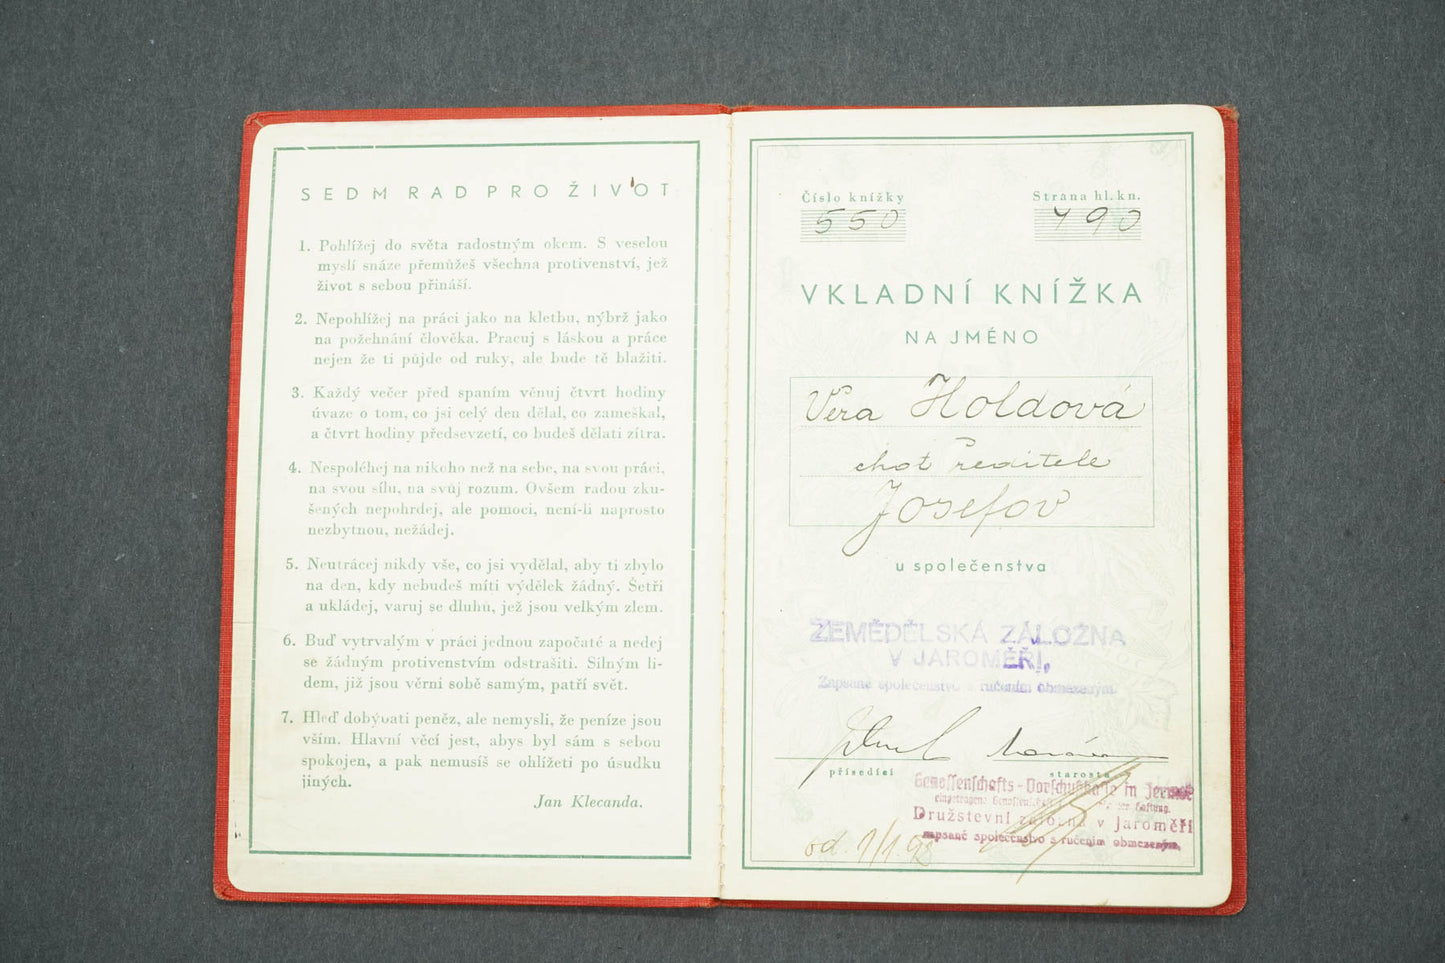 SEDM RAD PRO ŽIVOT
1. Pohlížej do světa radostným okem. S veselou
myslí snáze přemůžeš všechna protivenství, jež
život s sebou přináší.
2. Nepohlížej na práci jako na kletbu, nýbrž jako
na požehnání člověka. Pracuj s láskou a práce
nejen že ti půjde od ruky, ale bude tě blažiti.
3. Každý večer před spaním věnuj čtvrt hodiny
úvaze o tom, co jsi celý den dělal, co zameškal,
a čtvrt hodiny předsevzetí, co budeš dělati zítra.
4. Nespoléhej na nikoho než na sebe, na svou práci,
na svou sílu, na svůj rozum. Ovšem radou zku-
šených nepohrdej, ale pomoci, není-li naprosto
nezbytnou, nežádej.
5. Neutrácej nikdy vše, co jsi vydělal, aby ti zbylo
na den, kdy nebudeš míti výdělek žádný. Šetři
a ukládej, varuj se dluhů, jež jsou velkým zlem.
6. Buď vytrvalým v práci jednou započaté a nedej
se žádným protivenstvím odstrašiti. Silným li-
dem, již jsou věrni sobě samým, patří svět.
7. Hleď dobývati peněz, ale nemysli, že peníze jsou
vším. Hlavní věcí jest, abys byl sám s sebou
spokojen, a pak nemusíš se ohlížeti po úsudku
jiných.
Jan Klecanda.
Číslo knížky
550
Strana hl. kn.
490
VKLADNÍ KNÍŽKA
NA JMÉNO
Věra Holdová
choť ředitele
Josefov
u společenstva
ZEMĚDĚLSKÁ ZÁLOŽNA
V JAROMĚŘI,
Zapsané společenstvo s ručením obmezeným
přísedící
starosta
Genossenschafts-Vorschußkasse in Jermer
eingetragene Haftung.
Družstevní záložna v Jaroměři
zapsané společenstvo s ručením obmezeným,
od 1/1.